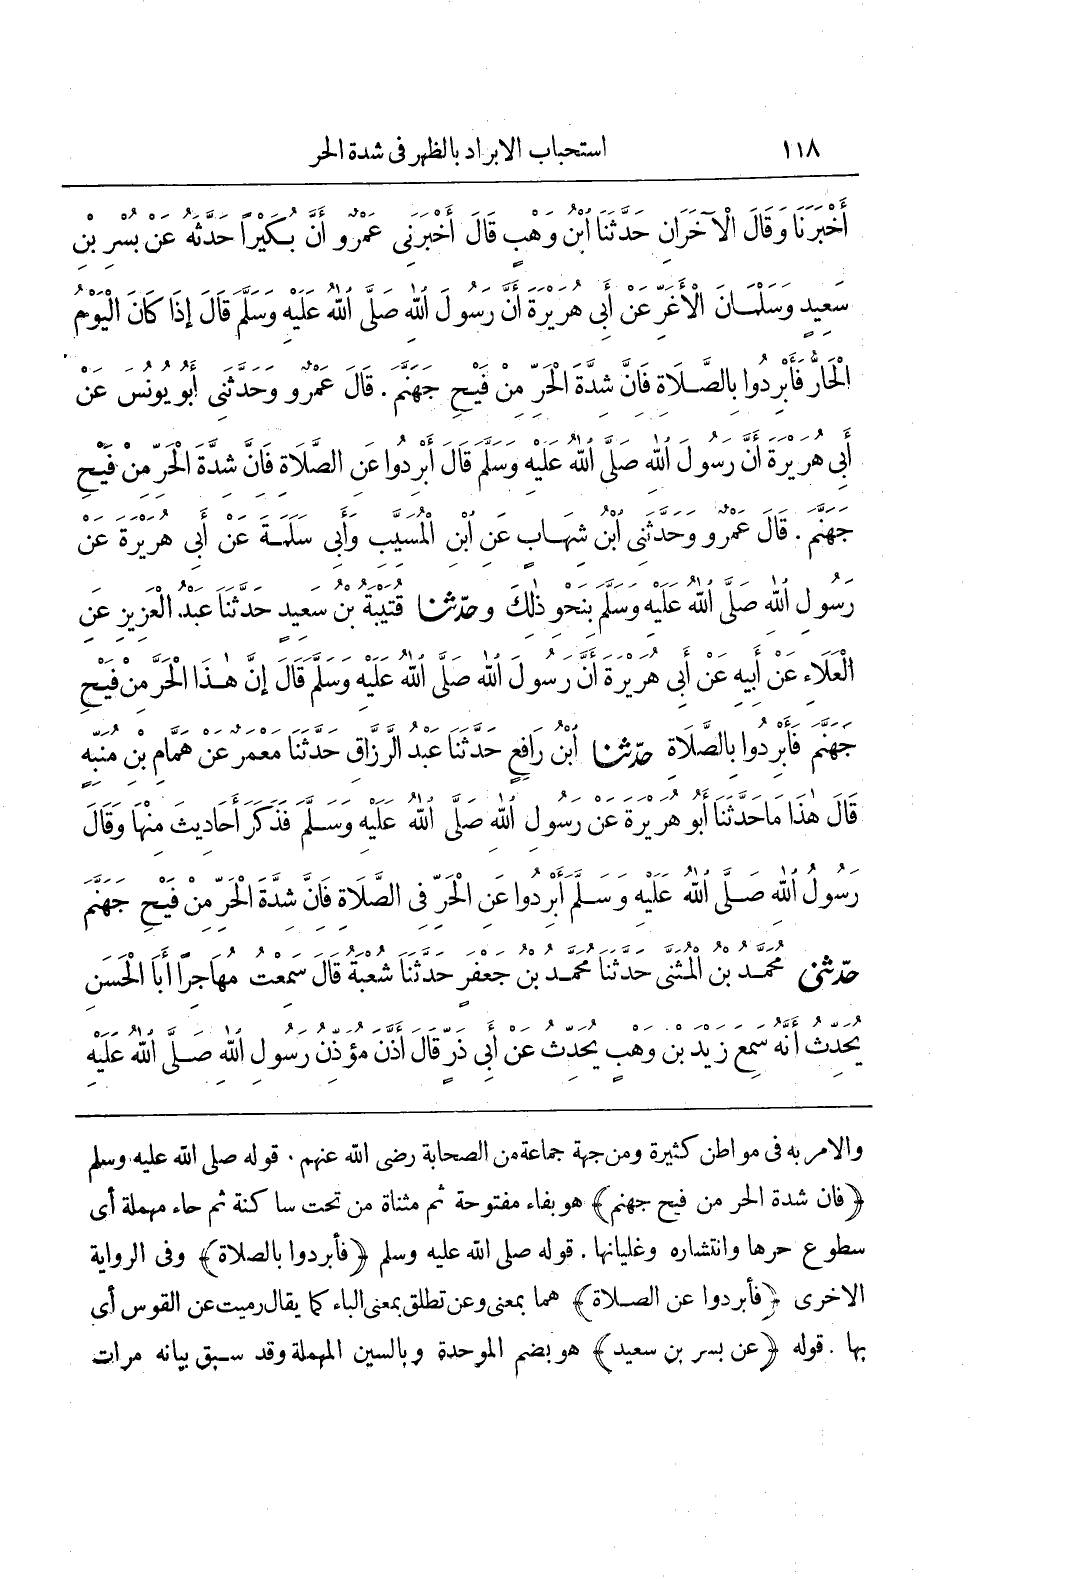 ١١٨ استحباب الابراد بالظهر فى شدة الحر
أَخْبَرَنَا وَقَالَ الْآخَرَانِ حَدَّثَنَا ابْنُ وَهْبٍ قَالَ أَخْبَرَنِى عَمْرٌو أَنَّ بُكَيْرًا حَدَّثَهُ عَنْ بُسْرِ بْنِ
سَعِيدٍ وَسَلْمَانَ الْأَغَرِّ عَنْ أَبِى هُرَيْرَةَ أَنَّ رَسُولَ اللّٰهِ صَلَّى اللّٰهُ عَلَيْهِ وَسَلَّمَ قَالَ إِذَا كَانَ الْيَوْمُ
الْحَارُّ فَأَبْرِدُوا بِالصَّلَاةِ فَانَّ شِدَّةَ الْحَرِّ مِنْ فَيْحِ جَهَنَّمَ . قَالَ عَمْرٌو وَحَدَّثَنِى أَبُو يُونُسَ عَنْ
أَبِى هُرَيْرَةَ أَنَّ رَسُولَ اللّٰهِ صَلَّى اللّٰهُ عَلَيْهِ وَسَلَّمَ قَالَ أَبْرِدُوا عَنِ الصَّلَاةِ فَانَّ شِدَّةَ الْحَرِّ مِنْ فَيْحِ
جَهَنَّمَ . قَالَ عَمْرٌو وَحَدَّثَنِى ابْنُ شِهَابٍ عَنِ ابْنِ الْمُسَيَّبِ وَأَبِى سَلَمَةَ عَنْ أَبِى هُرَيْرَةَ عَنْ
رَسُولِ اللّٰهِ صَلَّى اللّٰهُ عَلَيْهِ وَسَلَّمَ بِنَحْوِ ذٰلِكَ وحدّثنا قُتَيْبَةُ بْنُ سَعِيدٍ حَدَّثَنَا عَبْدُ الْعَزِيزِ عَنِ
الْعَلَاءِ عَنْ أَبِيهِ عَنْ أَبِى هُرَيْرَةَ أَنَّ رَسُولَ اللّٰهِ صَلَّى اللّٰهُ عَلَيْهِ وَسَلَّمَ قَالَ إِنَّ هٰذَا الْحَرَّ مِنْ فَيْحِ
جَهَنَّمَ فَأَبْرِدُوا بِالصَّلَاةِ حدّثنا ابْنُ رَافِعٍ حَدَّثَنَا عَبْدُ الرَّزَّاقِ حَدَّثَنَا مَعْمَرٌ عَنْ هَمَّامِ بْنِ مُنَبِّهٍ
قَالَ هٰذَا مَا حَدَّثَنَا أَبُو هُرَيْرَةَ عَنْ رَسُولِ اللّٰهِ صَلَّى اللّٰهُ عَلَيْهِ وَسَلَّمَ فَذَكَرَ أَحَادِيثَ مِنْهَا وَقَالَ
رَسُولُ اللّٰهِ صَلَّى اللّٰهُ عَلَيْهِ وَسَلَّمَ أَبْرِدُوا عَنِ الْحَرِّ فِى الصَّلَاةِ فَانَّ شِدَّةَ الْحَرِّ مِنْ فَيْحِ جَهَنَّمَ
حدّثنى مُحَمَّدُ بْنُ الْمُثَنَّى حَدَّثَنَا مُحَمَّدُ بْنُ جَعْفَرٍ حَدَّثَنَا شُعْبَةُ قَالَ سَمِعْتُ مُهَاجِرًا أَبَا الْحَسَنِ
يُحَدِّثُ أَنَّهُ سَمِعَ زَيْدَ بْنَ وَهْبٍ يُحَدِّثُ عَنْ أَبِى ذَرٍّ قَالَ أَذَّنَ مُؤَذِّنُ رَسُولِ اللّٰهِ صَلَّى اللّٰهُ عَلَيْهِ
والامر به فى مواطن كثيرة ومن جهة جماعة من الصحابة رضى الله عنهم . قوله صلى الله عليه وسلم
﴿فان شدة الحر من فيح جهنم﴾ هو بفاء مفتوحة ثم مثناة من تحت ساكنة ثم حاء مهملة أى
سطوع حرها وانتشاره وغليانها . قوله صلى الله عليه وسلم ﴿فأبردوا بالصلاة﴾ وفى الرواية
الاخرى ﴿فأبردوا عن الصلاة﴾ هما بمعنى وعن تطلق بمعنى الباء كما يقال رميت عن القوس أى
بها . قوله ﴿عن بسر بن سعيد﴾ هو بضم الموحدة وبالسين المهملة وقد سبق بيانه مرات